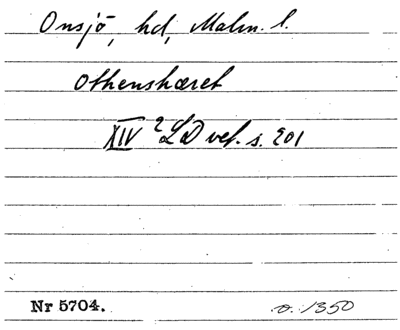 Onsjö, hd, Malm. l.
Othenshæret
XIV 2 LD vef. s. 201
Nr 5704.
o. 1350